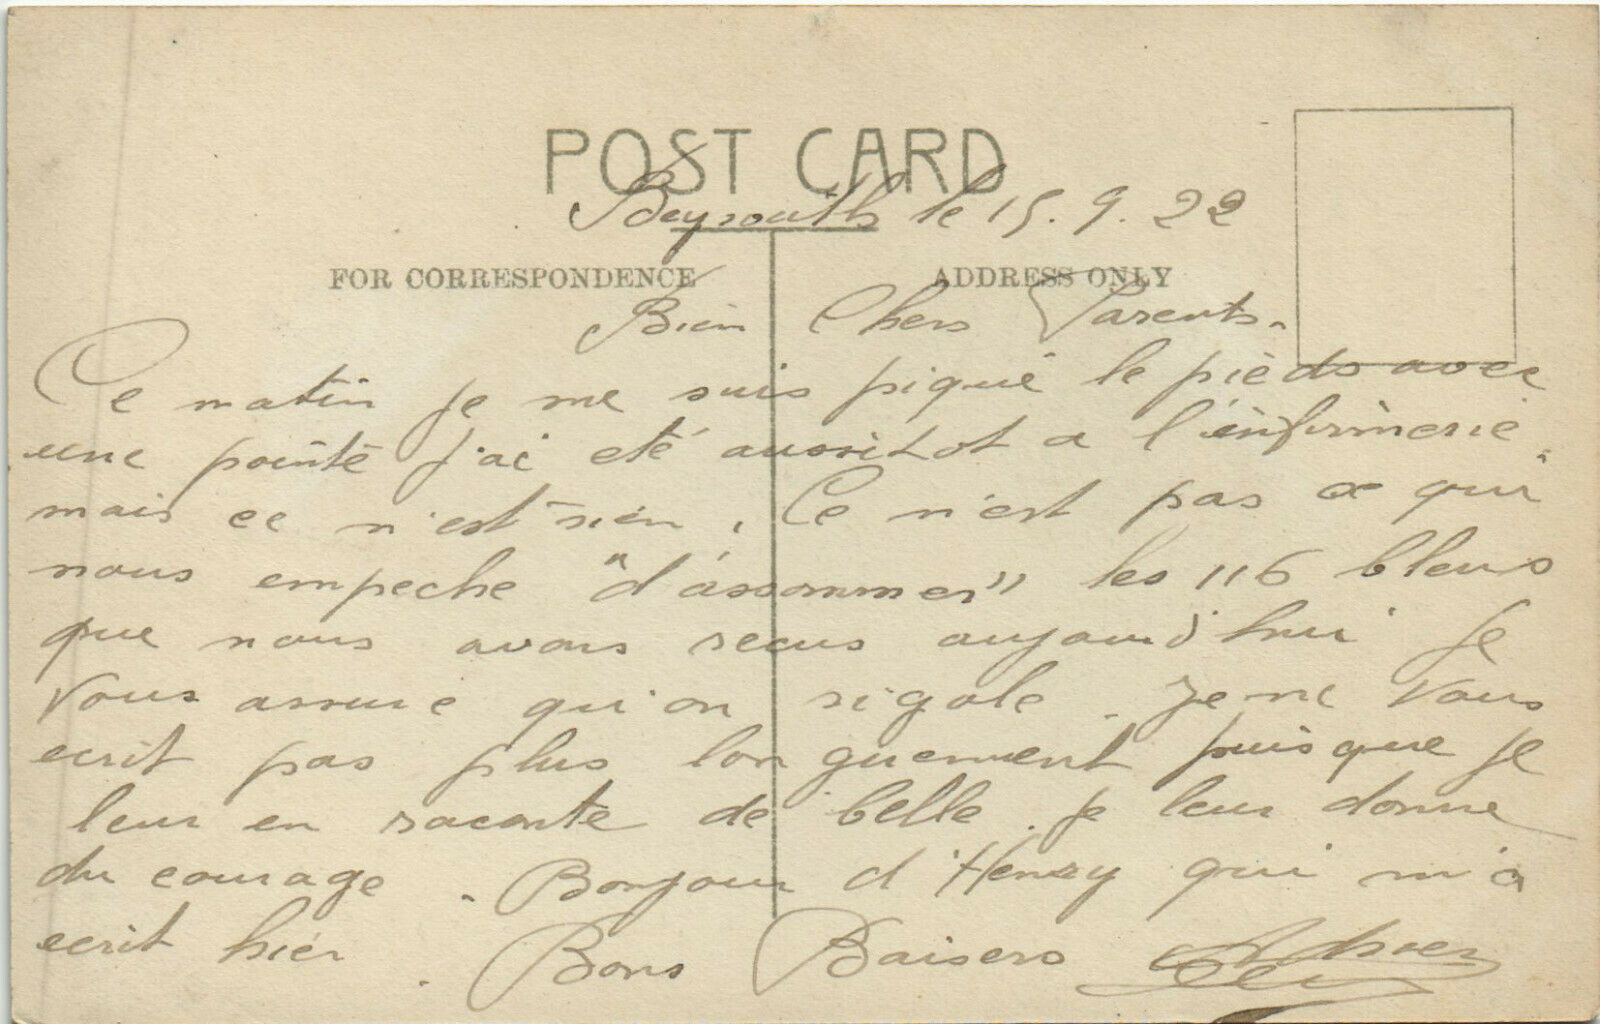 POST CARD
Beyrouth le 15.9.22
FOR CORRESPONDENCE
ADDRESS ONLY
Bien Chers Parents.
Ce matin je me suis piqué le pieds avec
une pointe j'ai eté aussitot a l'infirmerie.
mais ce n'est rien. Ce n'est pas ce qui
nous empeche "d'assommer" les 116 bleus
que nous avons recus aujourd'hui Je
Vous assure qu'on rigole. Je ne Vous
ecrit pas plus longuement puisque je
leur en raconte de belle. je leur donne
du courage. Bonjour d'Henry qui m'a
ecrit hier. Bons Baisers